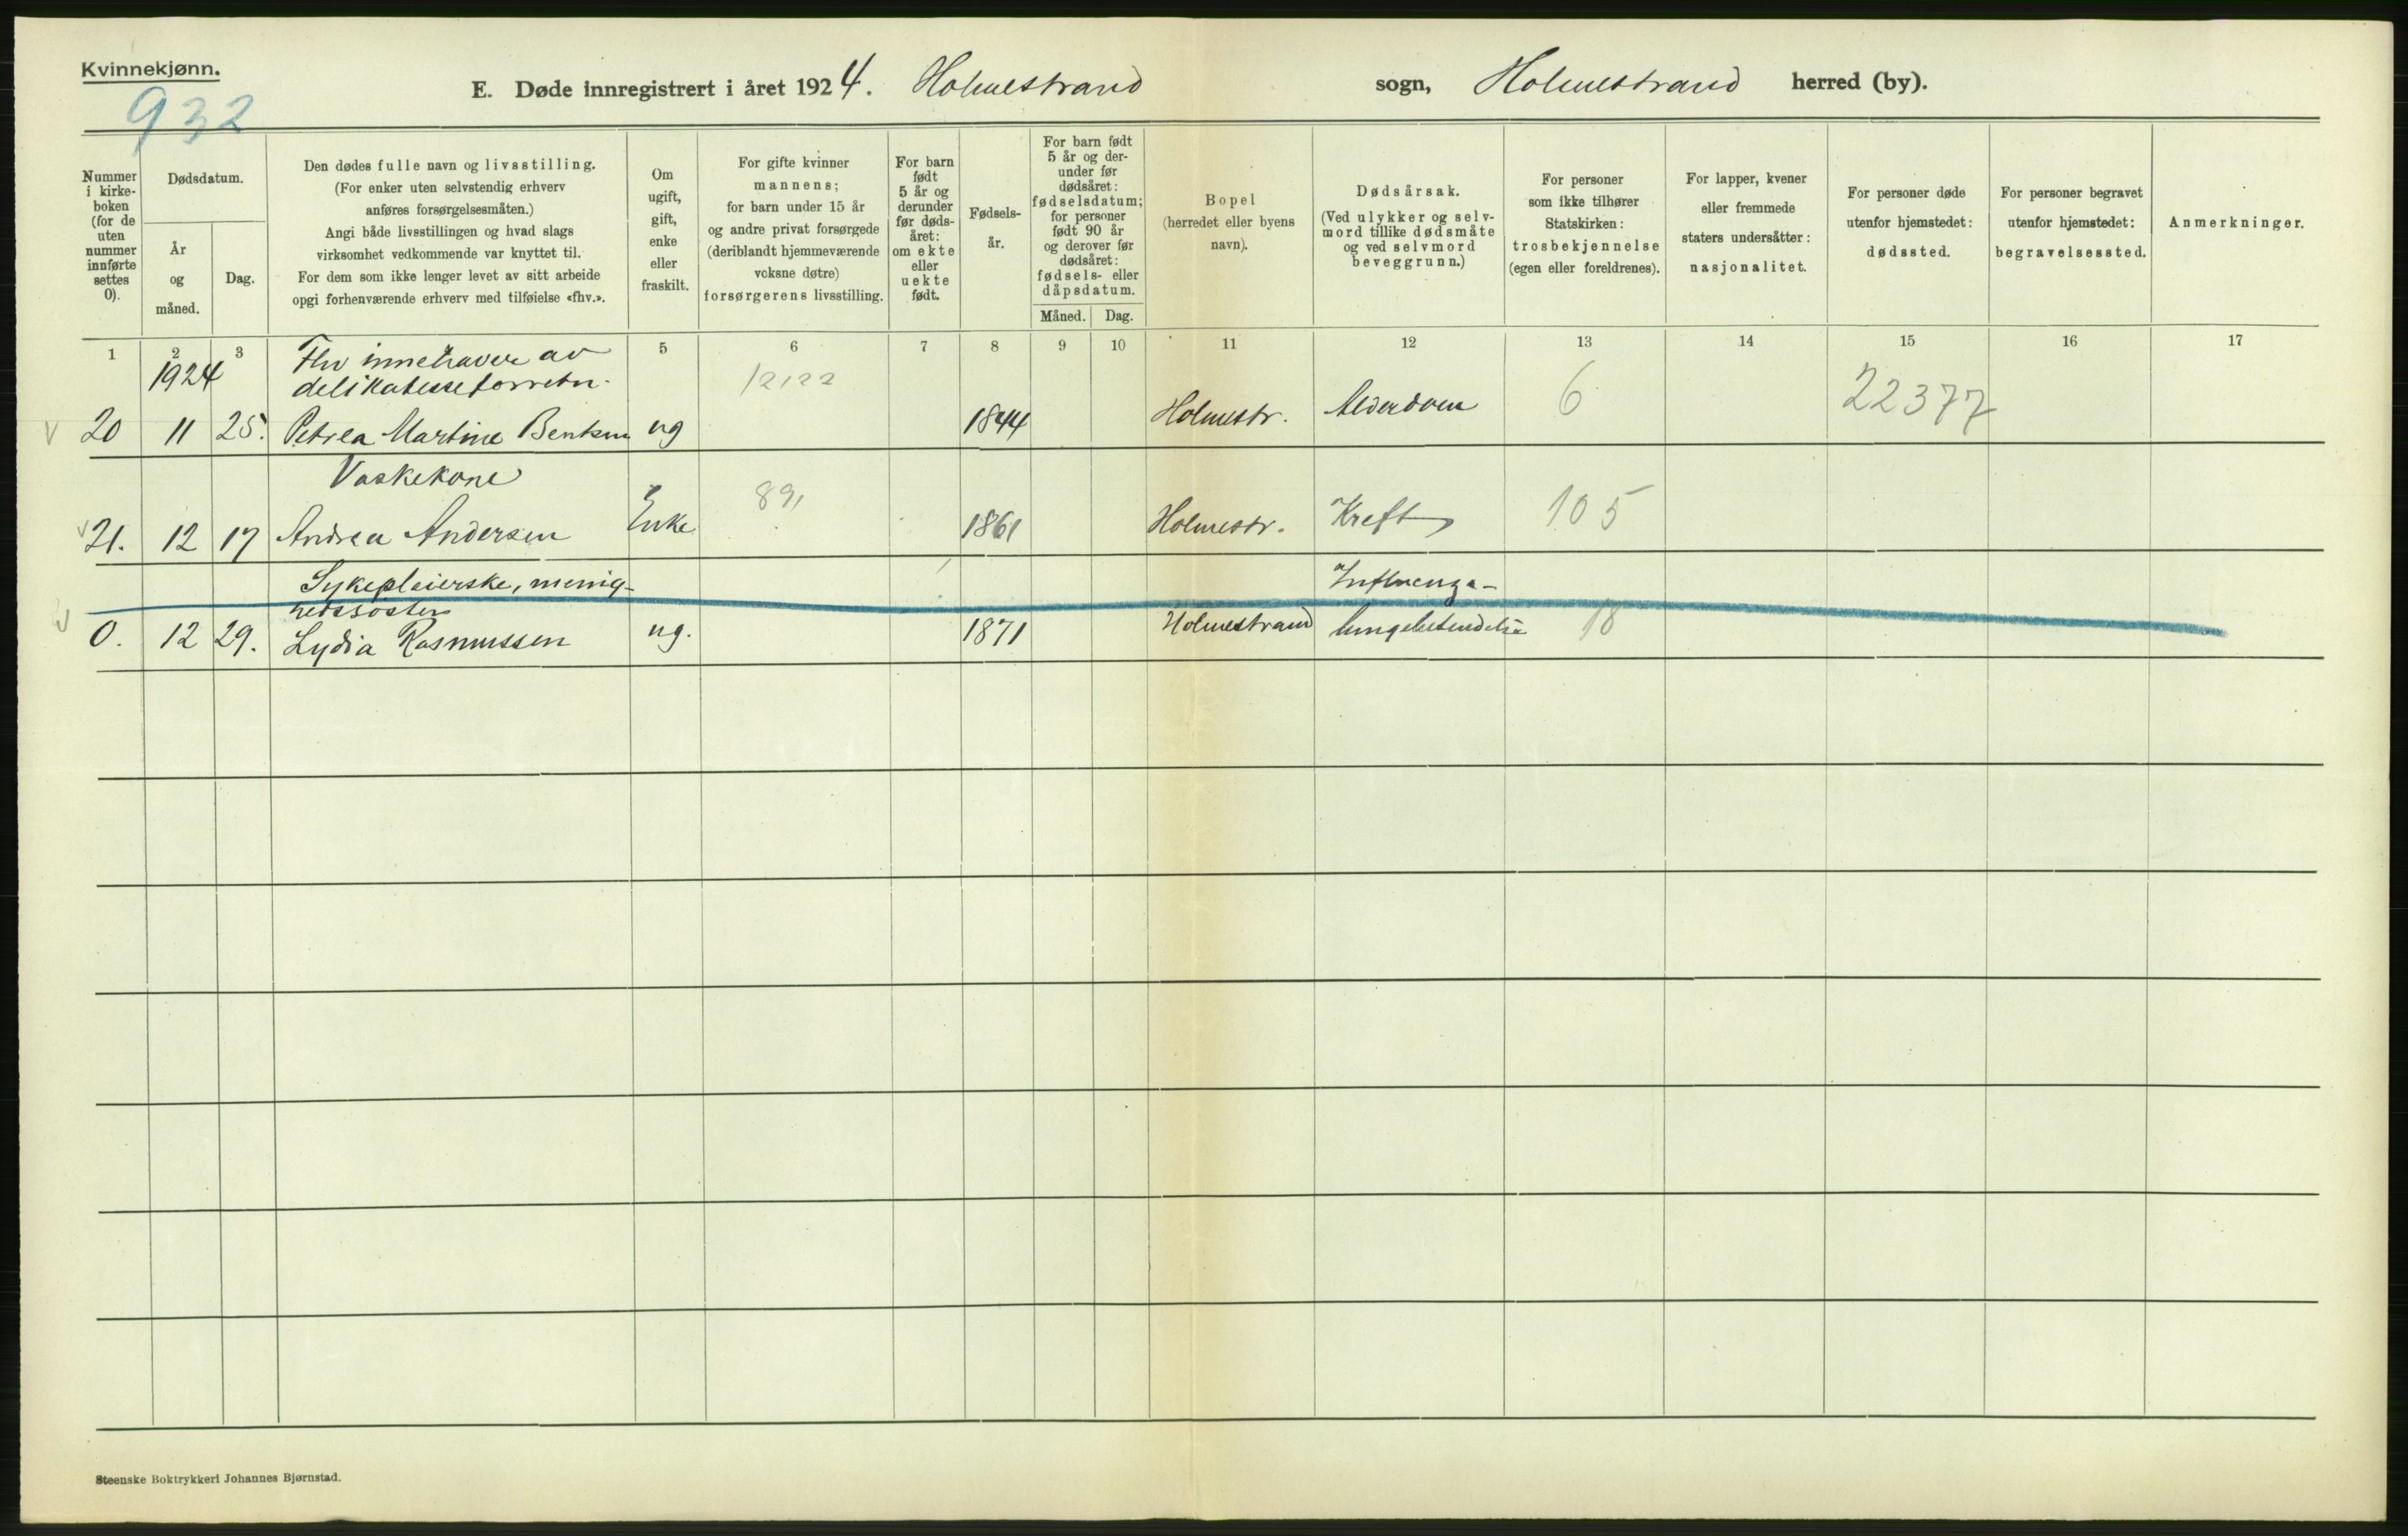 Kvinnekjønn.
932
E. Døde innregistrert i året 1924. Holmestrand sogn, Holmestrand herred (by).
Nummer
i kirke-
boken
(for de
uten
nummer
innførte
settes
0).
Dødsdatum.
År
og
måned.
Dag.
Den dødes fulle navn og livsstilling.
(For enker uten selvstendig erhverv
anføres forsørgelsesmåten.)
Angi både livsstillingen og hvad slags
virksomhet vedkommende var knyttet til.
For dem som ikke lenger levet av sitt arbeide
opgi forhenværende erhverv med tilføielse «fhv.».
Om
ugift,
gift,
enke
eller
fraskilt.
For gifte kvinner
mannens;
for barn under 15 år
og andre privat forsørgede
(deriblandt hjemmeværende
voksne døtre)
forsørgerens livsstilling.
For barn
født
5 år og
derunder
før døds-
året:
om ekte
eller
uekte
født.
Fødsels-
år.
For barn født
5 år og der-
under før
dødsåret:
fødselsdatum;
for personer
født 90 år
og derover før
dødsåret:
fødsels- eller
dåpsdatum.
Måned. Dag.
Bopel
(herredet eller byens
navn).
Dødsårsak.
(Ved ulykker og selv-
mord tillike dødsmåte
og ved selvmord
beveggrunn.)
For personer
som ikke tilhører
Statskirken:
trosbekjennelse
(egen eller foreldrenes).
For lapper, kvener
eller fremmede
staters undersåtter:
nasjonalitet.
For personer døde
utenfor hjemstedet:
dødssted.
For personer begravet
utenfor hjemstedet:
begravelsessted.
Anmerkninger.
1 2 3 5 6 7 8 9 10 11 12 13 14 15 16 17
1924 Fhv innehaver av
delikatesseforretn. 12122
V 20 11 25. Petrea Martine Bentsen ug 1844 Holmestr. Alderdom 6 22377
Vaskekone
v 21. 12 17 Andrea Andersen Enke 891 1861 Holmestr. Kreft 105
Sykepleierske, menig- Influenza-
hetssøster
v 0. 12 29. Lydia Rasmussen ug. 1871 Holmestrand lungebetendelse 18
Steenske Boktrykkeri Johannes Bjørnstad.